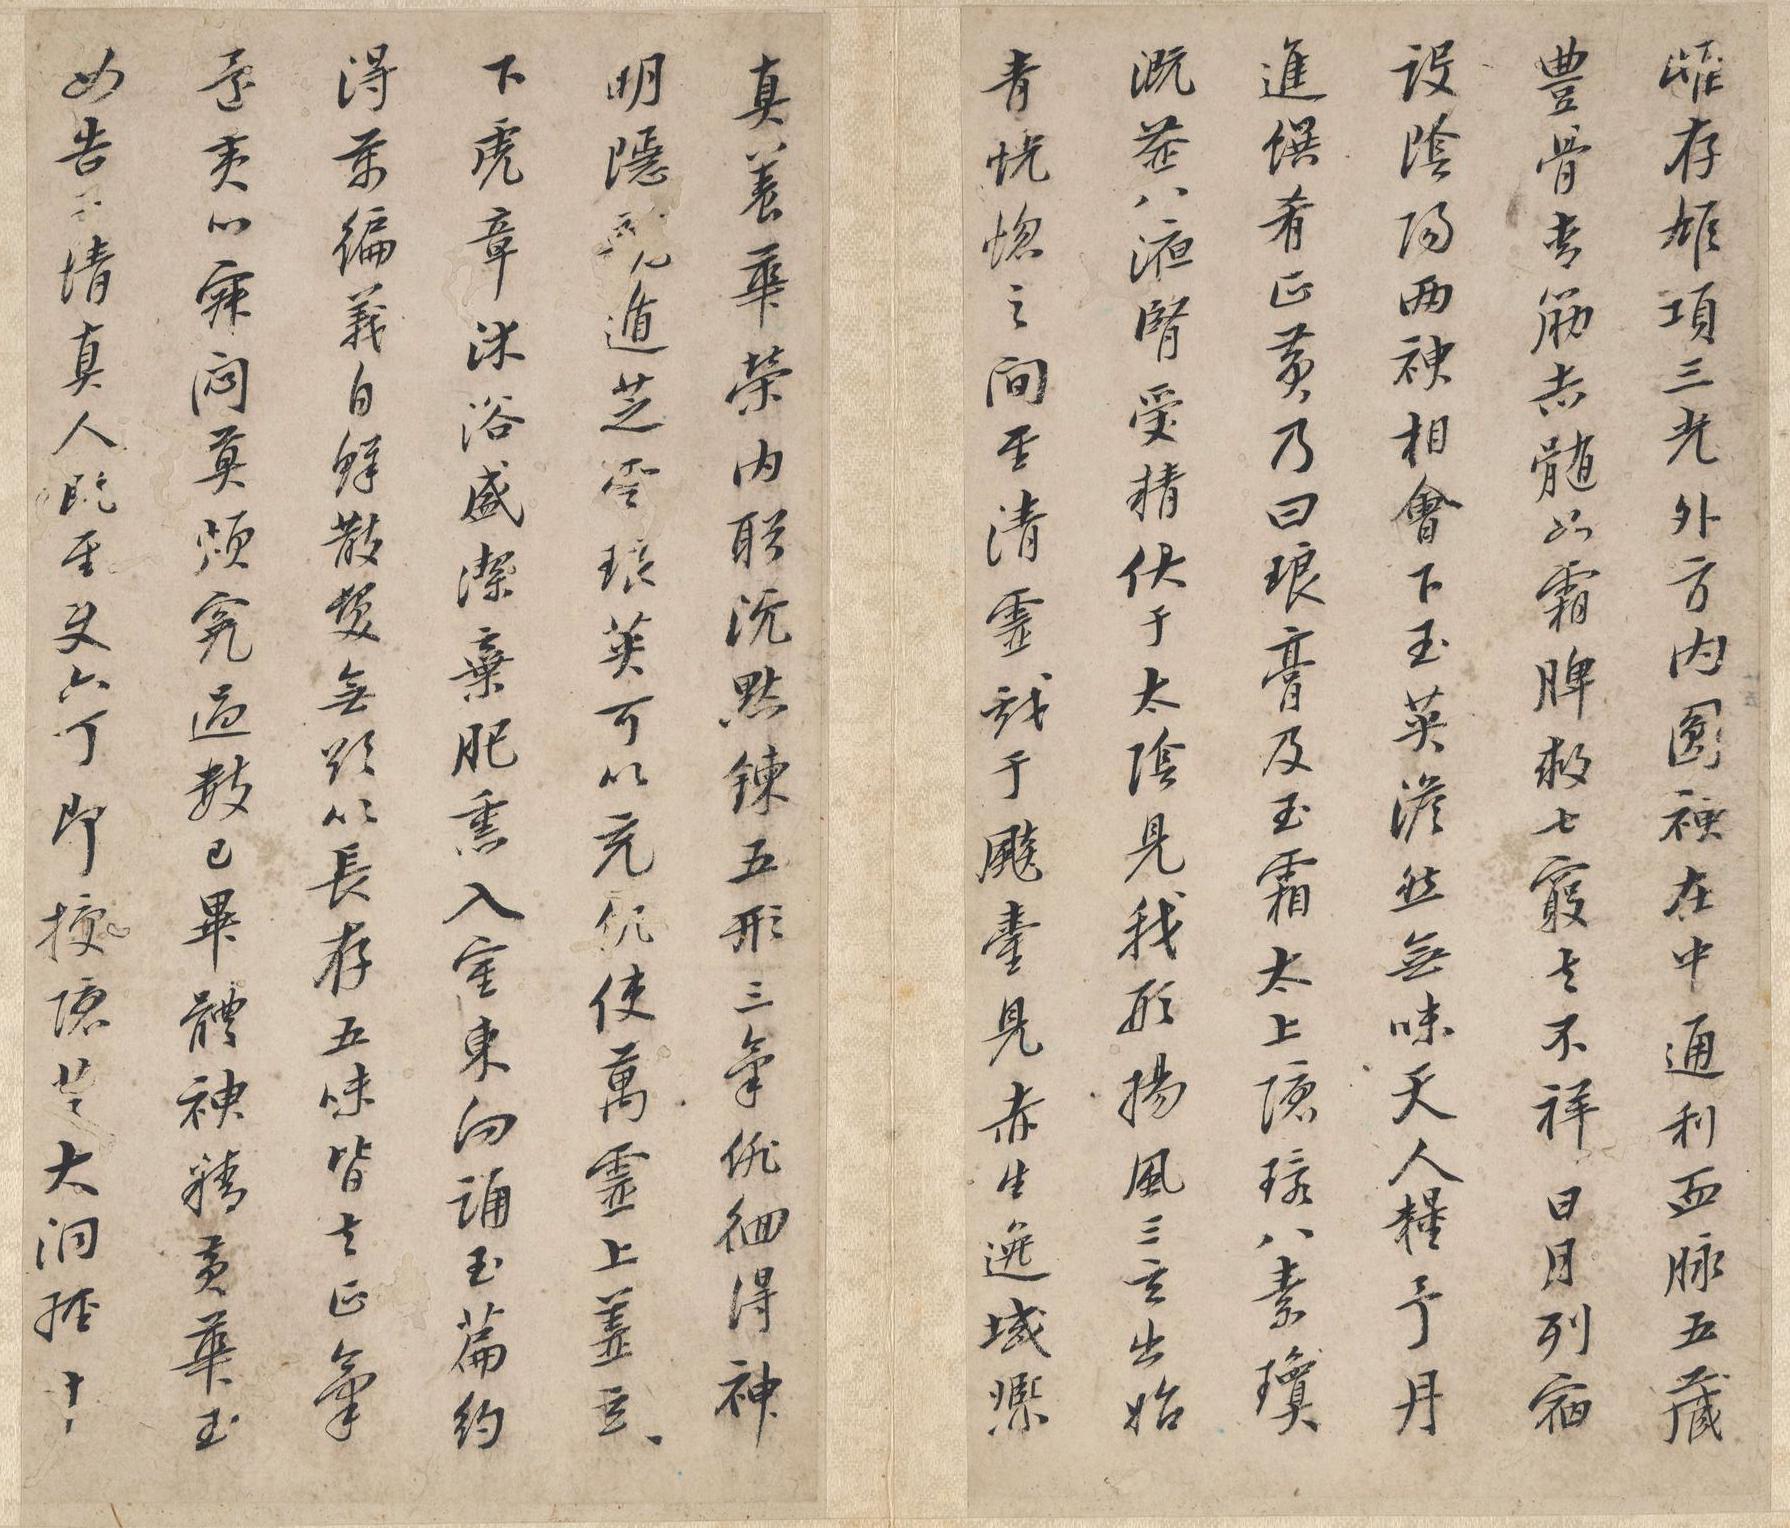 存雄項三光外方內圓神在中通利血脉五藏
豊骨青筋赤髓如霜脾救七竅去不祥日月列宿
設陰陽兩神相會下玉英澹然無味天人糧子丹
進饌肴正黃乃曰琅膏及玉霜太上隱環八素瓊
溉益八液腎受精伏于太陰見我形揚風三玄出始
青恍惚之間至清靈戲于飈臺見赤生逸域熙
真養華榮內盼沉默鍊五形三氣徘徊得神
明隱龍遁芝雲琅英可以充飢使萬靈上蓋玄
下虎章沐浴盛潔棄肥熏入室東向誦玉篇約
得萬徧義自鮮散髮無欲以長存五味皆去正氣
還夷心寂悶莫煩冤過數已畢體神精黃華玉
女告子情真人既至使六丁即授隱芝大洞經十